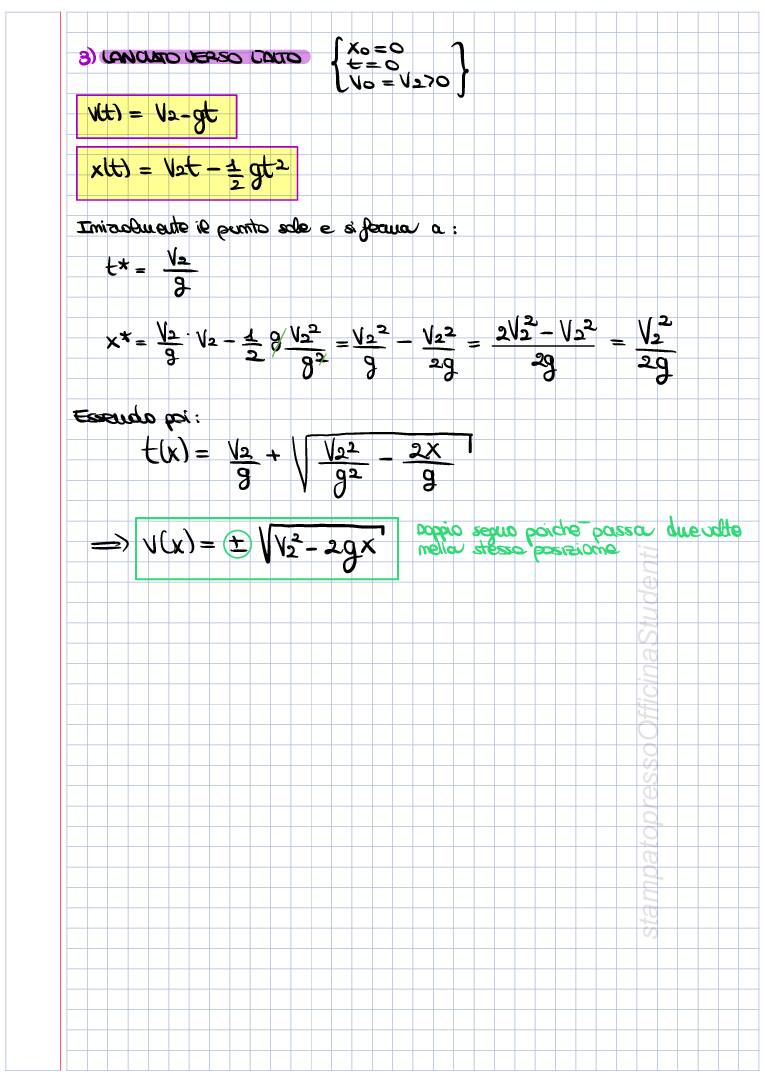 3) LANCIATO VERSO L'ALTO { x0 = 0
t = 0
V0 = V2 > 0 }
v(t) = V2 - gt
x(t) = V2t - 1/2 gt²
Inizialmente il punto sale e si ferma a:
t* = V2/g
x* = V2/g · V2 - 1/2 g V2²/g² = V2²/g - V2²/2g = (2V2² - V2²)/2g = V2²/2g
Essendo poi:
t(x) = V2/g + √(V2²/g² - 2x/g)
⟹ v(x) = ± √(V2² - 2gx)
Doppio segno poiché passa due volte
nella stessa posizione
stampatopressoOfficinaStudenti